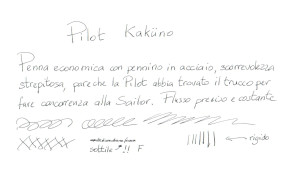 Pilot Kaküno
Penna economica con pennino in acciaio, scorrevolezza
strepitosa, pare che la Pilot abbia trovato il trucco per
fare concorrenza alla Sailor. Flusso preciso e costante
← rigido
sottile !! F